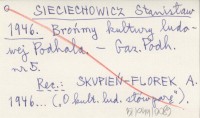 SIECIECHOWICZ Stanisław
1946. Brońmy kultury ludo-
wej Podhala. – Gaz. Podh.
nr 5.
Rec.: SKUPIEŃ-FLOREK A.
1946... („O kult. lud. słow